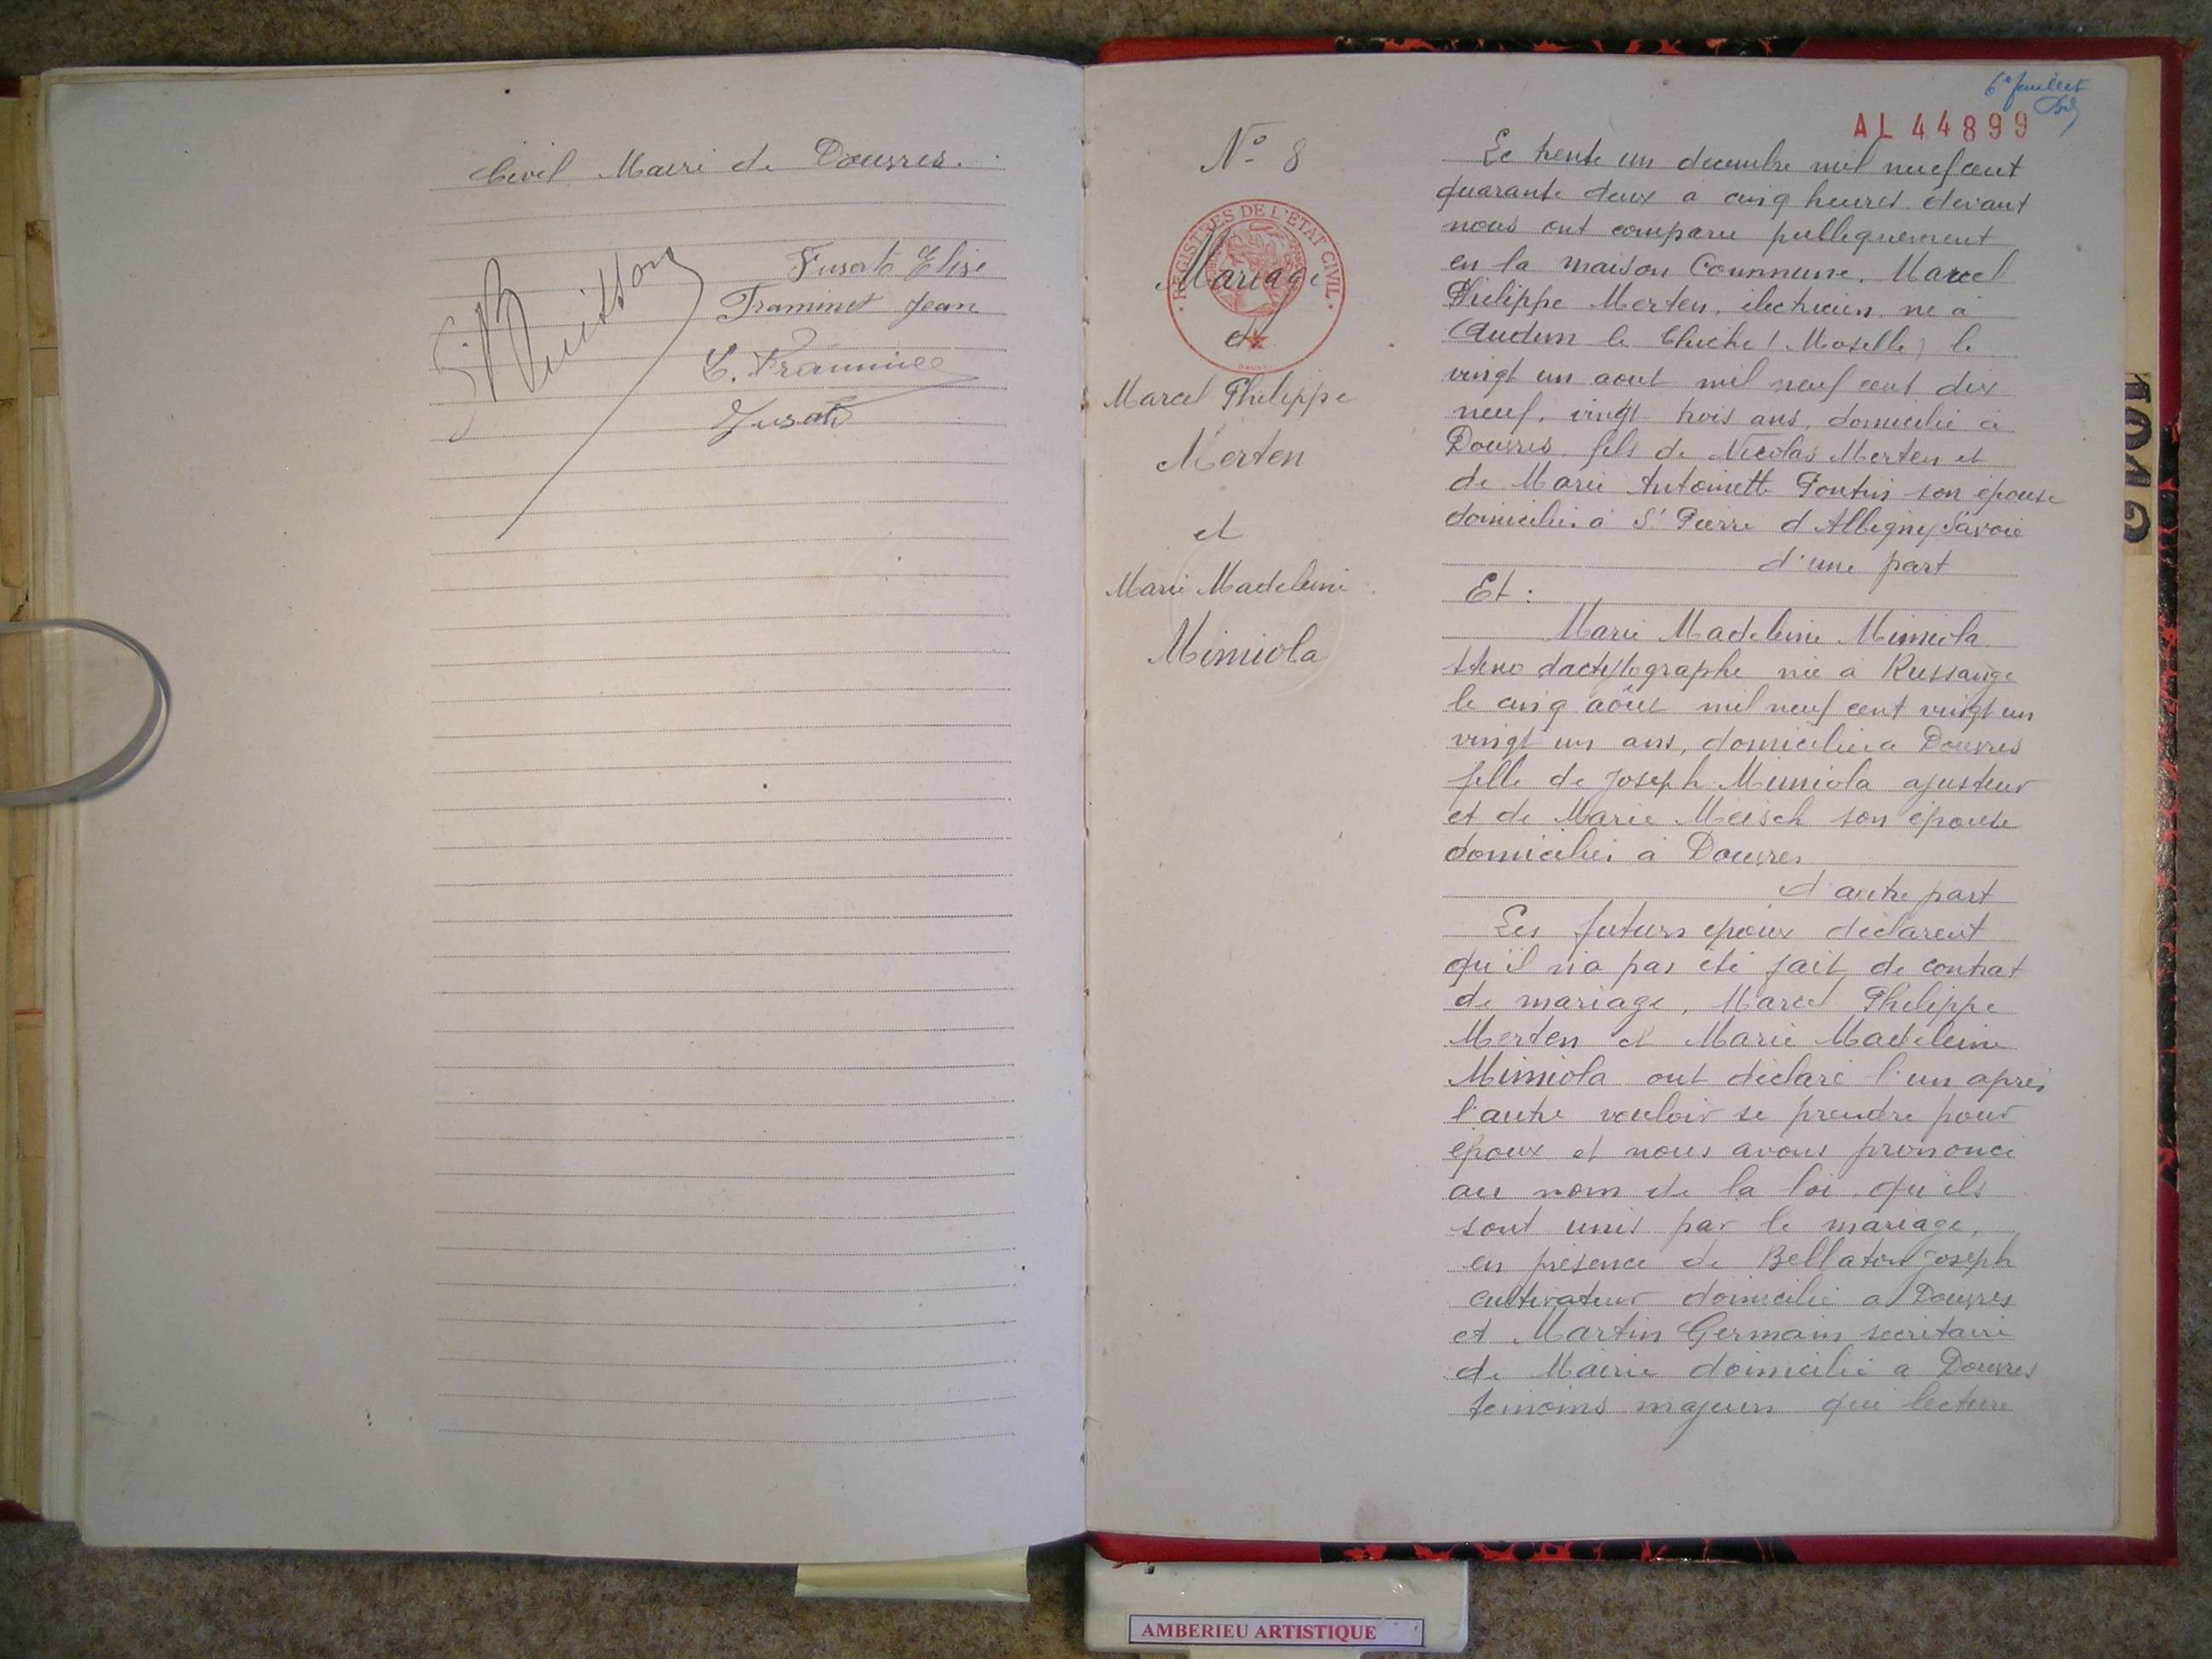 Civil Maire de Douvres.
Fusat Elise
Traminet Jean
Buisson
6e feuillet
AL 44899
N° 8
REGISTRES DE L'ETAT CIVIL
Mariage
de
Marcel Philippe
Merten
et
Marie Madeleine
Mimiola
Le trente un decembre mil neuf cent
quarante deux a cinq heures devant
nous ont comparu publiquement
en la maison Commune, Marcel
Philippe Merten, électricien, né à
Audun le Chiche (Moselle) le
vingt un aout mil neuf cent dix
neuf, vingt trois ans, domicilié à
Douvres fils de Nicolas Merten et
de Marie Antoinette son épouse
domiciliés à St Pierre d'Albigny Savoie
d'une part
Et :
Marie Madeleine Mimiola
steno dactylographe née à Russange
le cinq août mil neuf cent vingt un
vingt un ans, domiciliée a Douvres
fille de Joseph Mimiola ajusteur
et de Marie Meisch son épouse
domiciliés à Douvres
d'autre part
Les futurs époux déclarent
qu'il n'a pas été fait de contrat
de mariage, Marcel Philippe
Merten et Marie Madeleine
Mimiola ont déclaré l'un après
l'autre vouloir se prendre pour
époux et nous avons prononcé
au nom de la loi, qu'ils
sont unis par le mariage,
en présence de Bellaton Joseph
cultivateur domicilié a Douvres
et Martin Germain secrétaire
de Mairie domicilié a Douvres
temoins majeurs qui lecture
1942
AMBERIEU ARTISTIQUE